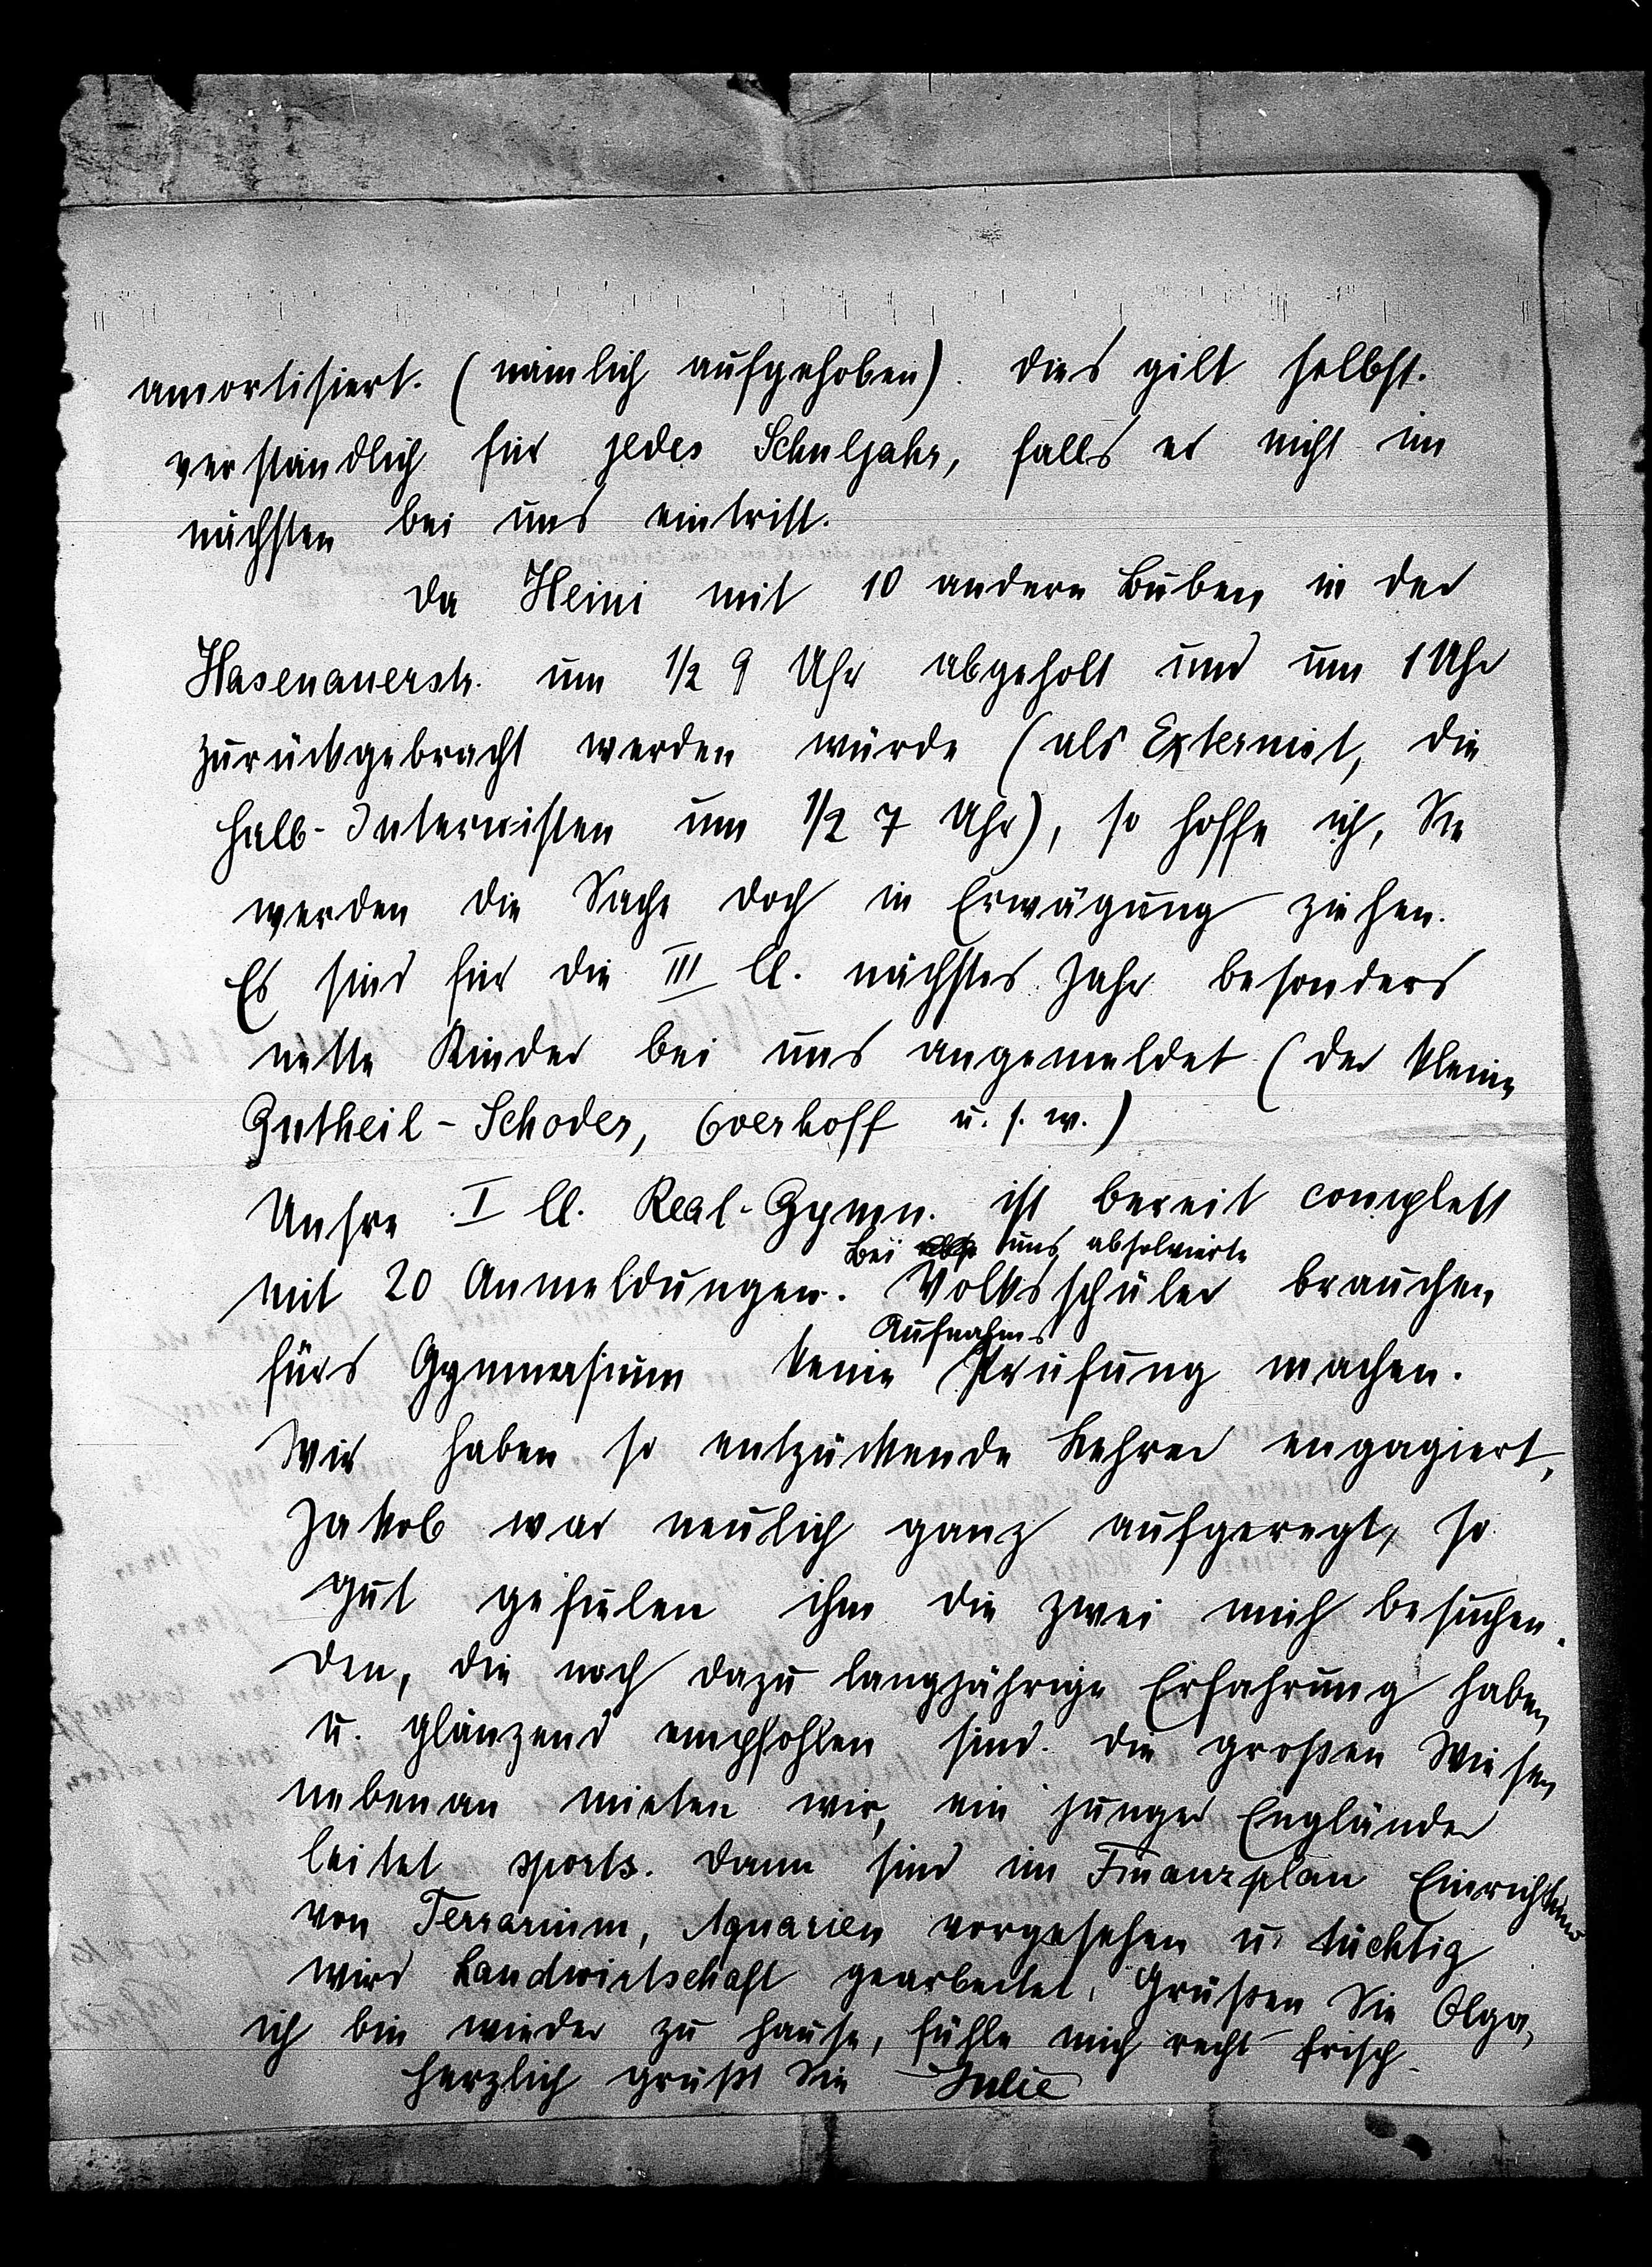 amortisiert. (nämlich aufgehoben). Dies gilt selbst-
verständlich für jedes Schuljahr, falls er nicht im
nächsten bei uns eintritt.
Da Heini mit 10 andern Buben in der
Hasenauerstr. um 1/2 9 Uhr abgeholt und um 1 Uhr
zurückgebracht werden würde (als Externist, die
Halb-Internisten um 1/2 7 Uhr), so hoffe ich, Sie
werden die Sache doch in Erwägung ziehen.
Es sind für die III Cl. nächstes Jahr besonders
nette Kinder bei uns angemeldet (der kleine
Gutheil-Schoder, Overhoff u. s. w.)
Unsre I Cl. Real-Gymn. ist bereit complett
Bei uns absolvierte
mit 20 Anmeldungen. Volksschüler brauchen
Aufnahms-
fürs Gymnasium keine Prüfung machen.
Wir haben so entzückende Lehrer engagiert,
Jakob war neulich ganz aufgeregt, so
gut gefielen ihm die zwei mich besuchen-
den, die noch dazu langjährige Erfahrung haben
u. glänzend empfohlen sind. Die großen Wiesen
nebenan mieten wir, ein junger Engländer
leitet sports. Dann sind im Finanzplan
von Terrarium, Aquarien vorgesehen u. tüchtig
wird Landwirtschaft gearbeitet. Grüßen Sie Olga,
ich bin wieder zu Hause, fühle mich recht frisch.
Herzlich grüßt Sie Julie